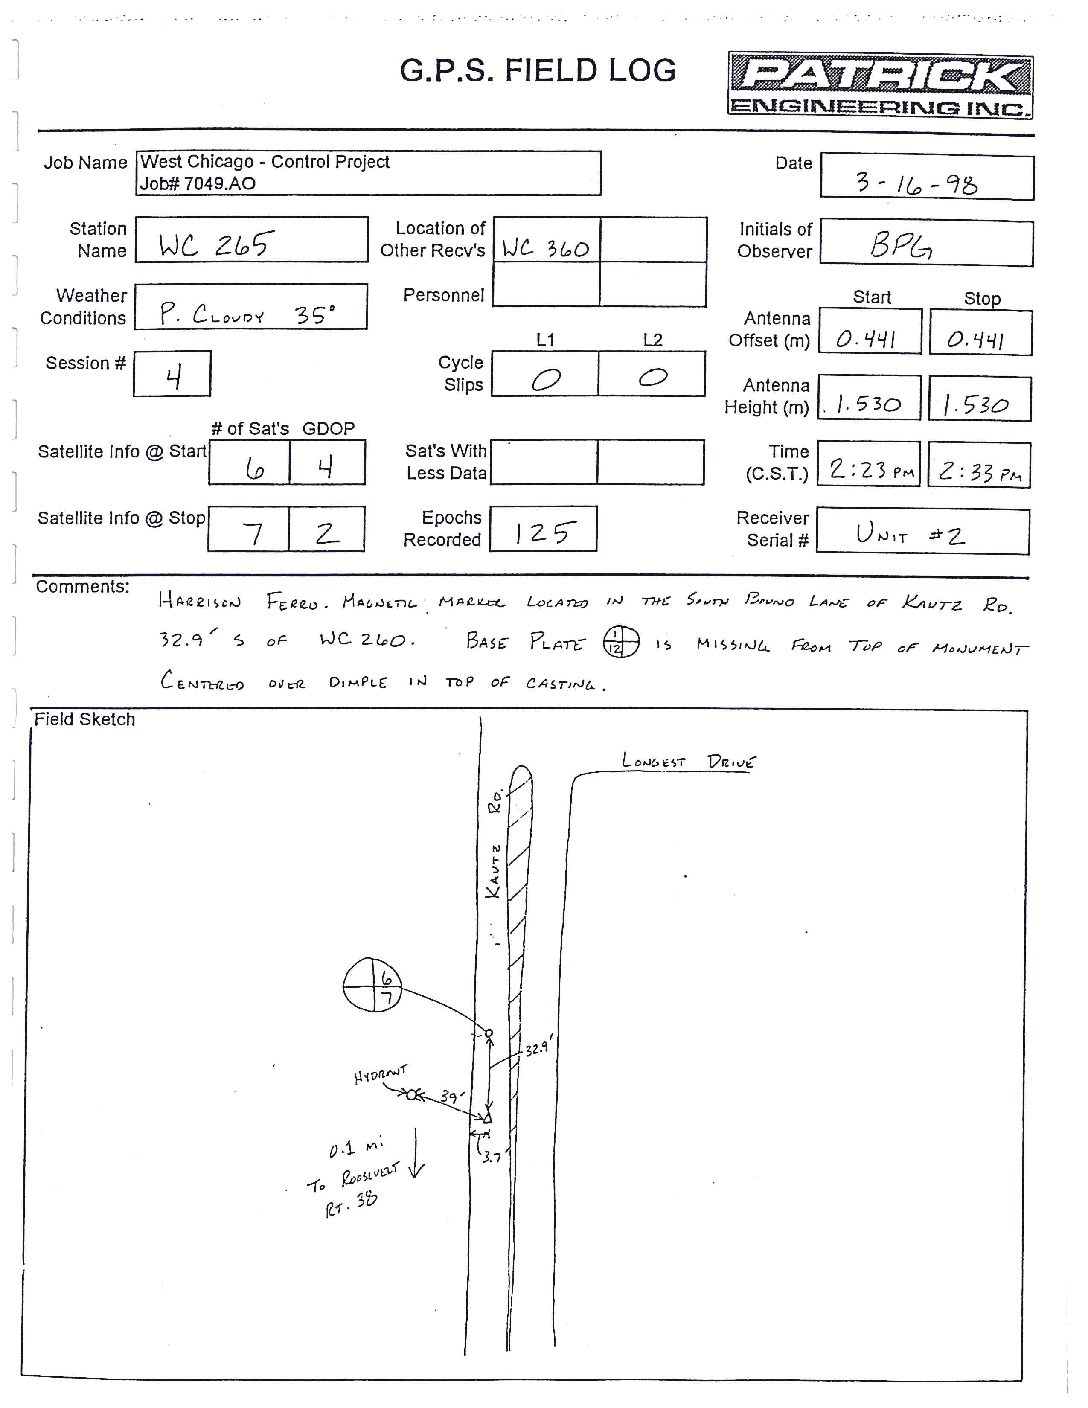 G.P.S. FIELD LOG
PATRICK
ENGINEERING INC.
Job Name West Chicago - Control Project
Job# 7049.AO
Date 3-16-98
Station Name WC 265
Location of Other Recv's WC 360
Initials of Observer BPG
Weather Conditions P. CLOUDY 35°
Personnel
Start Stop
Antenna Offset (m) 0.441 0.441
Session # 4
L1 L2
Cycle Slips 0 0
Antenna Height (m) 1.530 1.530
# of Sat's GDOP
Satellite Info @ Start 6 4
Sat's With Less Data
Time (C.S.T.) 2:23 PM 2:33 PM
Satellite Info @ Stop 7 2
Epochs Recorded 125
Receiver Serial # UNIT #2
Comments:
HARRISON FERRO. MAGNETIC MARKER LOCATED IN THE SOUTH BOUND LANE OF KAUTZ RD.
32.9' S OF WC 260. BASE PLATE 1 12 IS MISSING FROM TOP OF MONUMENT
CENTERED OVER DIMPLE IN TOP OF CASTING.
Field Sketch
LONGEST DRIVE
KAUTZ RD.
6
7
32.9'
HYDRANT
39'
3.7'
0.1 MI
TO ROOSEVELT
RT. 38